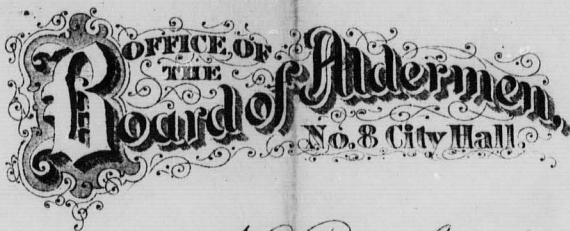 OFFICE OF
THE
Board of Aldermen,
No. 8 City Hall.